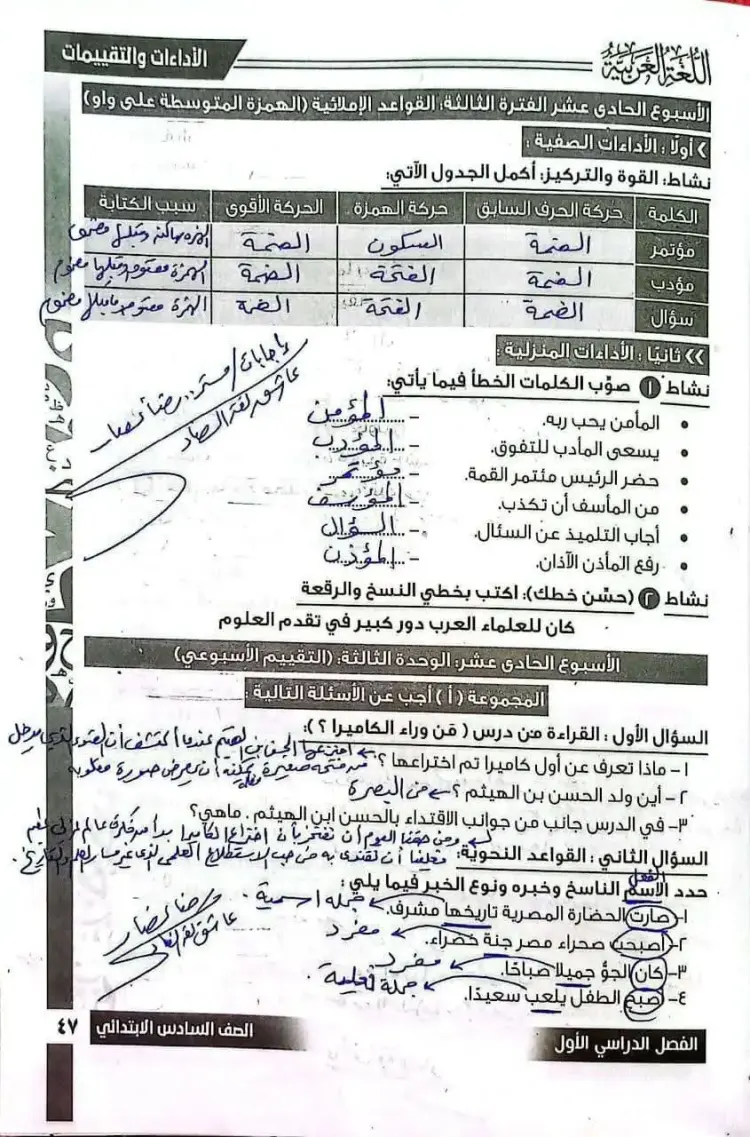 اللغة العربية
الأداءات والتقييمات
الأسبوع الحادى عشر الفترة الثالثة: القواعد الإملائية (الهمزة المتوسطة على واو)
أولًا : الأداءات الصفية :
نشاط: القوة والتركيز: أكمل الجدول الآتي:
الكلمة حركة الحرف السابق حركة الهمزة الحركة الأقوى سبب الكتابة
مؤتمر الضمة السكون الضمة الهمزة ساكنة وقبلها مضموم
مؤدب الضمة الفتحة الضمة الهمزة مفتوحة وقبلها مضموم
سؤال الضمة الفتحة الضمة الهمزة مفتوحة وقبلها مضموم
ثانيًا : الأداءات المنزلية :
نشاط ١ صوِّب الكلمات الخطأ فيما يأتي:
إجابات / مستر.. رضا
عاشق لغة الضاد
المأمن يحب ربه. - المؤمن
يسعى المأدب للتفوق. - المؤدب
حضر الرئيس مئتمر القمة. - مؤتمر
من المأسف أن تكذب. - المؤسف
أجاب التلميذ عن السئال. - السؤال
رفع المأذن الآذان. - المؤذن
نشاط ٢ (حسِّن خطك): اكتب بخطي النسخ والرقعة
كان للعلماء العرب دور كبير في تقدم العلوم
الأسبوع الحادى عشر: الوحدة الثالثة: (التقييم الأسبوعي)
المجموعة ( أ ) أجب عن الأسئلة التالية :
السؤال الأول : القراءة من درس ( مَن وراء الكاميرا ؟ ):
اخترعها الحسن بن الهيثم عندما اكتشف أن الضوء الذي يدخل
١- ماذا تعرف عن أول كاميرا تم اختراعها ؟ من فتحة صغيرة يمكنه أن يعرض صورة مقلوبة
٢- أين ولد الحسن بن الهيثم ؟ من البصرة
٣- في الدرس جانب من جوانب الاقتداء بالحسن ابن الهيثم . ماهي؟
ومن حقنا اليوم أن نفتخر بأن اختراع الكاميرا بدأ من فكرة عالم
السؤال الثاني : القواعد النحوية: فعلينا أن نقتدي به في حب الاستطلاع العلمي الذي غير مسار العلم والتاريخ.
الفعل
حدد الاسم الناسخ وخبره ونوع الخبر فيما يلي:
١- صارت الحضارة المصرية تاريخها مشرف. جملة اسمية
٢- أصبحت صحراء مصر جنة خضراء. مفرد
٣- كان الجوُّ جميلا صباحًا. مفرد
٤- أصبح الطفل يلعب سعيدًا. جملة فعلية
رضا
عاشق لغة الضاد
الفصل الدراسي الأول
الصف السادس الابتدائي
٤٧